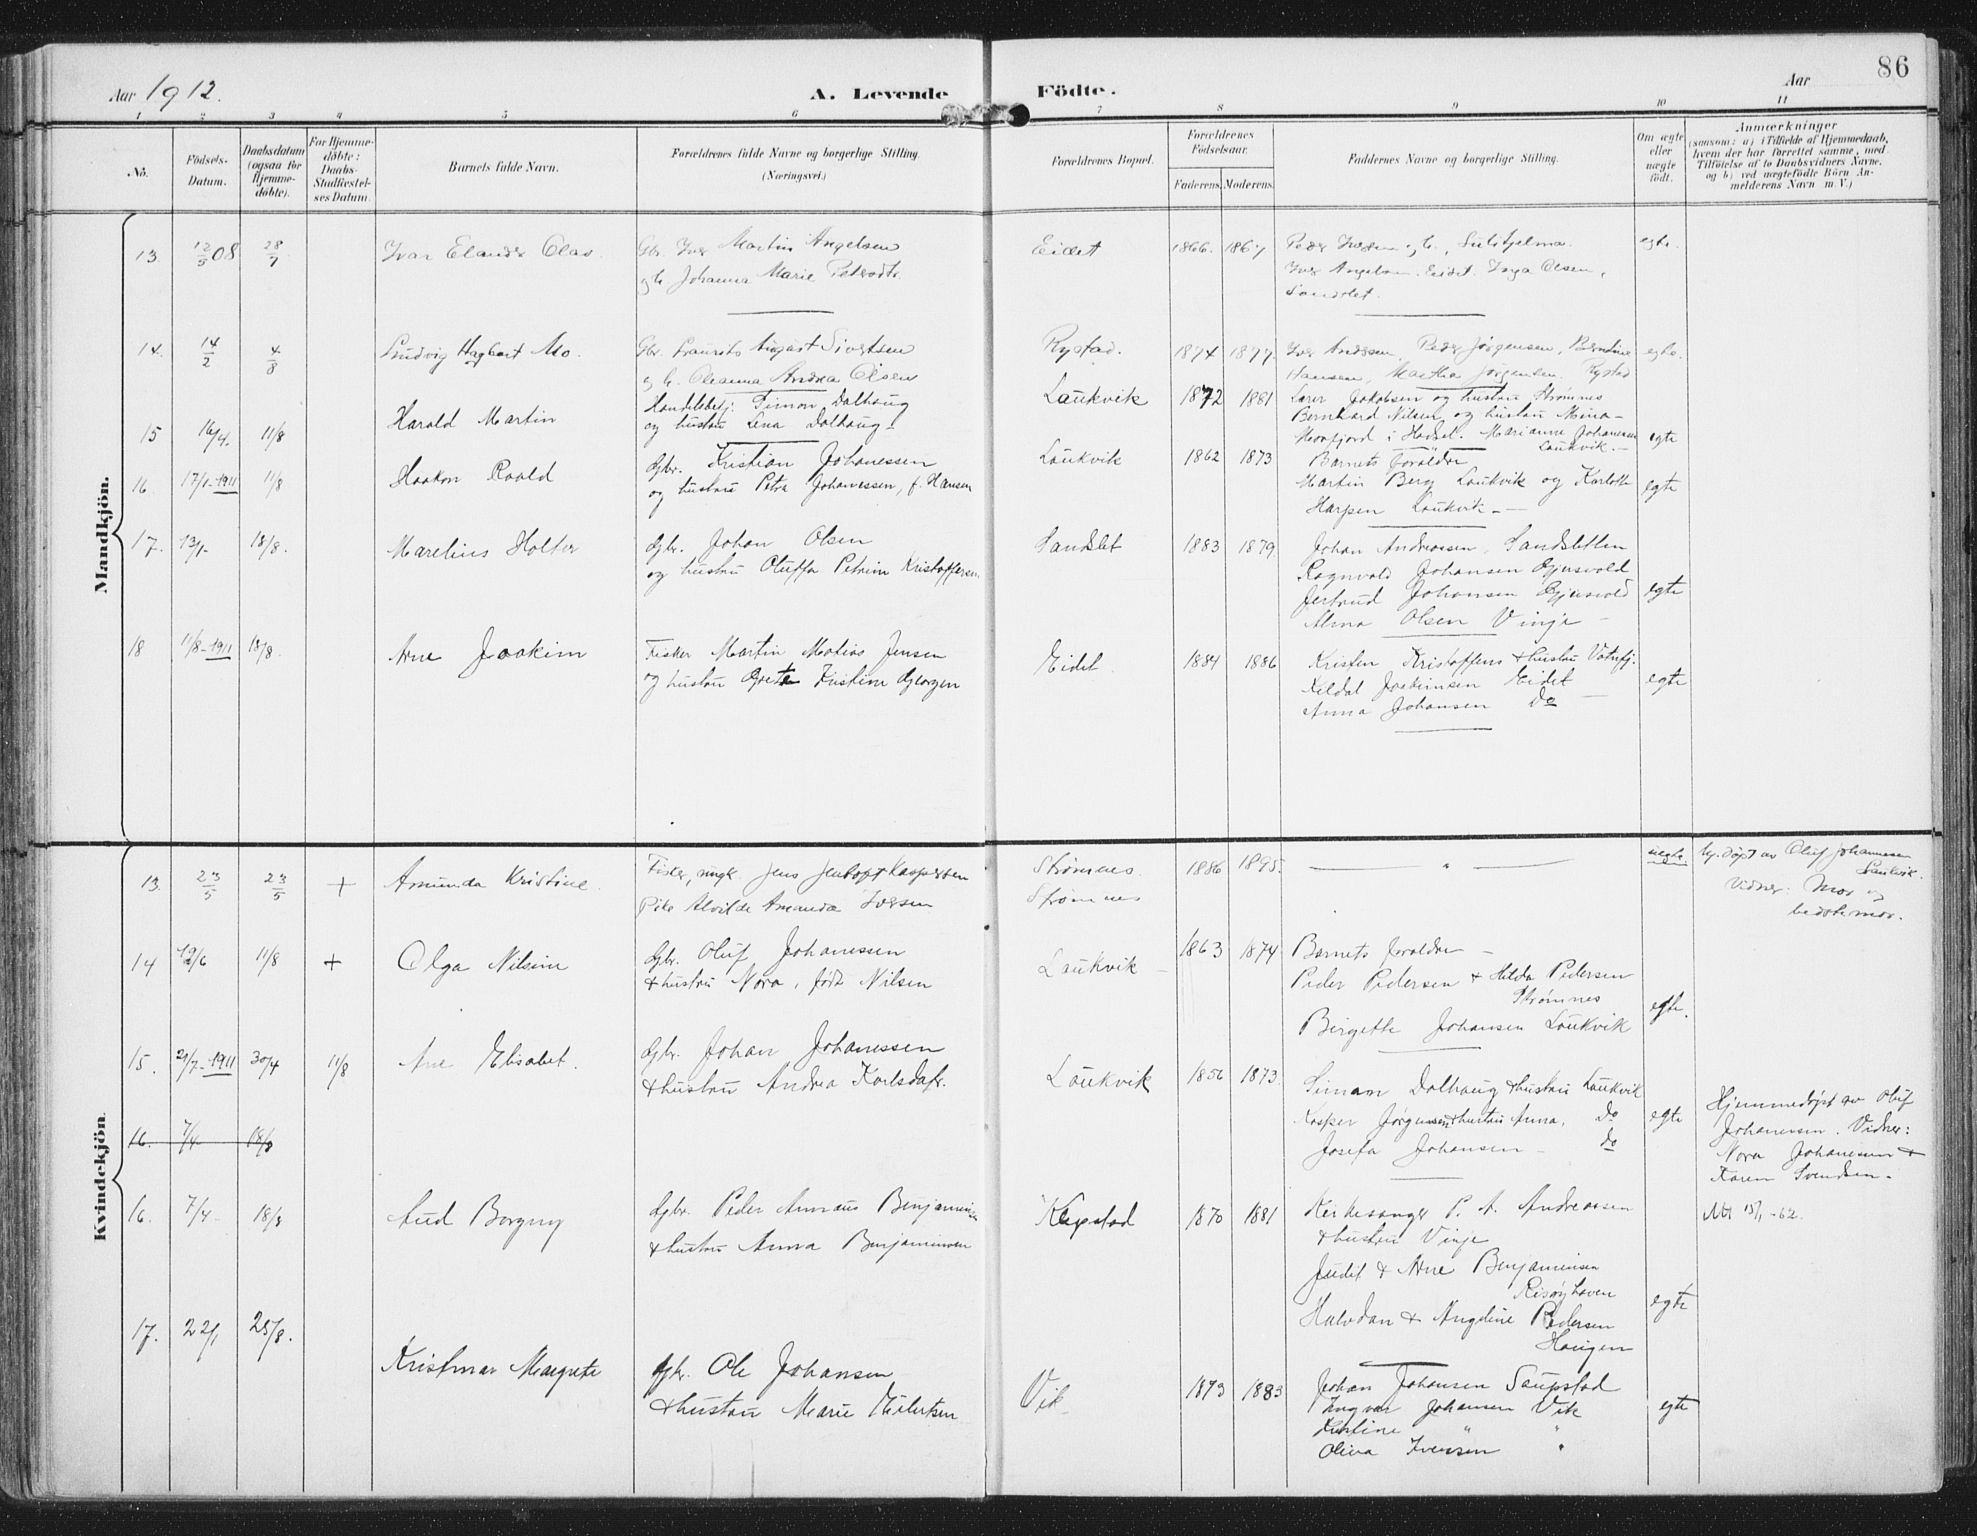 Aar 1912.
A. Levende Födte.
Aar
86
1 2 3 4 5 6 7 8 9 10 11
No.
Födsels-
Datum.
Daabsdatum
(ogsaa for
Hjemme-
döbte).
For Hjemme-
döbte:
Daabs-
Stadfæstel-
ses Datum.
Barnets fulde Navn.
Forældrenes fulde Navne og borgerlige Stilling.
(Næringsvei.)
Forældrenes Bopæl.
Forældrenes
Fødselsaar.
Faderens. Moderens.
Faddernes Navne og borgerlige Stilling.
Om ægte
eller
uægte
födt.
Anmærkninger
(saasom: a) i Tilfælde af Hjemmedaab,
hvem der har forrettet samme, med
Tilföielse af to Daabsvidners Navne,
og b) ved uægtefödte Börn An-
melderens Navn m. V.)
Mandkjön.
13. 12/5 08 28/7 Ivar Elander Olav. Gbr. Iver Martin Angelsen Eidet 1866. 1867 egte.
og h. Johanna Marie Petersdtr. Iver Angelsen. Eidet. Inga Olsen,
Sandslet.
14. 14/2 4/8 Ludvig Hagbart Mo. Gbr. Laurits August Sivertsen Rystad. 1874 1877. Iver Andersen, Peder Jørgensen, Berntine egte.
og h. Oleanna Andrea Olsen Hansen, Martha Jørgensen. Rystad
Handelsbetj. Simon Dalhaug Laukvik 1872 1881 Lærer Jakobsen og hustru Strømnes
15 16/4. 11/8 Harald Martin og hustru Lena Dalhaug. Bernhard Nilsen og hustru Mina-
i Hadsel. Marianne Johanesen egte
Laukvik.
16 17/1-1911 11/8 Haakon Roald Gbr. Kristian Johanessen Laukvik 1862 1873 Barnets foræld​re
og hustru Petra Johanessen, f. Hansen Martin Berg Laukvik og Karlotte egte
Laukvik
17. 13/1- 18/8. Marelius Holter Gbr. Johan Olsen Sandslet 1883 1879 Johan Andreassen, Sandsletten
og hustru Oluffa Petrine Kristoffersen Ragnvald Johansen Gjersvold
Jertrud Johansen Gjersvold egte
Alma Olsen Vinje
18 11/8-1911 18/8. Arne Joakim Fisker Martin Matias Jensen Eidet 1884 1886 Kristen & hustru
og hustru Grete Kristine Georgsen Joakimsen Eidet egte
Anna Johansen Do
Kvindekjön
13. 23/5 23/5 + Amunda Kristine. Fisker, ungk. Jens Jentoft Kaspersen Strømnes. 1886 1895. " uegte. hj. døpt av Oluf Johannesen
Pike Alvilde Amanda Iversen Strømnes Laukvik.
Vidner: Mor og
bedstemor.
14 12/6 11/8 + Olga Nilsine Gbr. Oluf Johanessen Laukvik 1863 1874 Barnets forældre
& hustru Nora, født Nilsen Peder Pedersen & Hilda Pedersen
Strømnes
Birgette Johansen Laukvik egte.
15. 21/7-1911 30/4 11/8 Ane Elisabet. Gbr. Johan Johanessen Laukvik 1856 1873. Simon Dalhaug & hustru Laukvik
& hustru Andrea Karlsdatr. Kasper Jørgensen & hustru Anna, Do egte
Josefa Johansen Do
Hjemmedøpt av Oluf
Johanesen. Vidner:
Nora Johanesen &
Karen Svendsen.
16. 7/4 18/8
16. 7/4- 18/8 Aud Borgny Gbr. Peder Annæus Benjaminsen Klepstad 1870 1881 Kirkesanger P. A. Andreassen
& hustru Anna Benjaminsen & hustru Vinje
Judit & Arne Benjaminsen
Risøyhaven
Halvdan & Angeline Pedersen egte
Haugen
15/1-62.
17. 22/1 25/8. Kristmar Margrete Gbr. Ole Johansen Vik 1873 1883 Johan Johansen Saupstad
& hustru Marie Eilertsen Ingvar Johansen Vik egte
Kristine " "
Oliva Iversen "